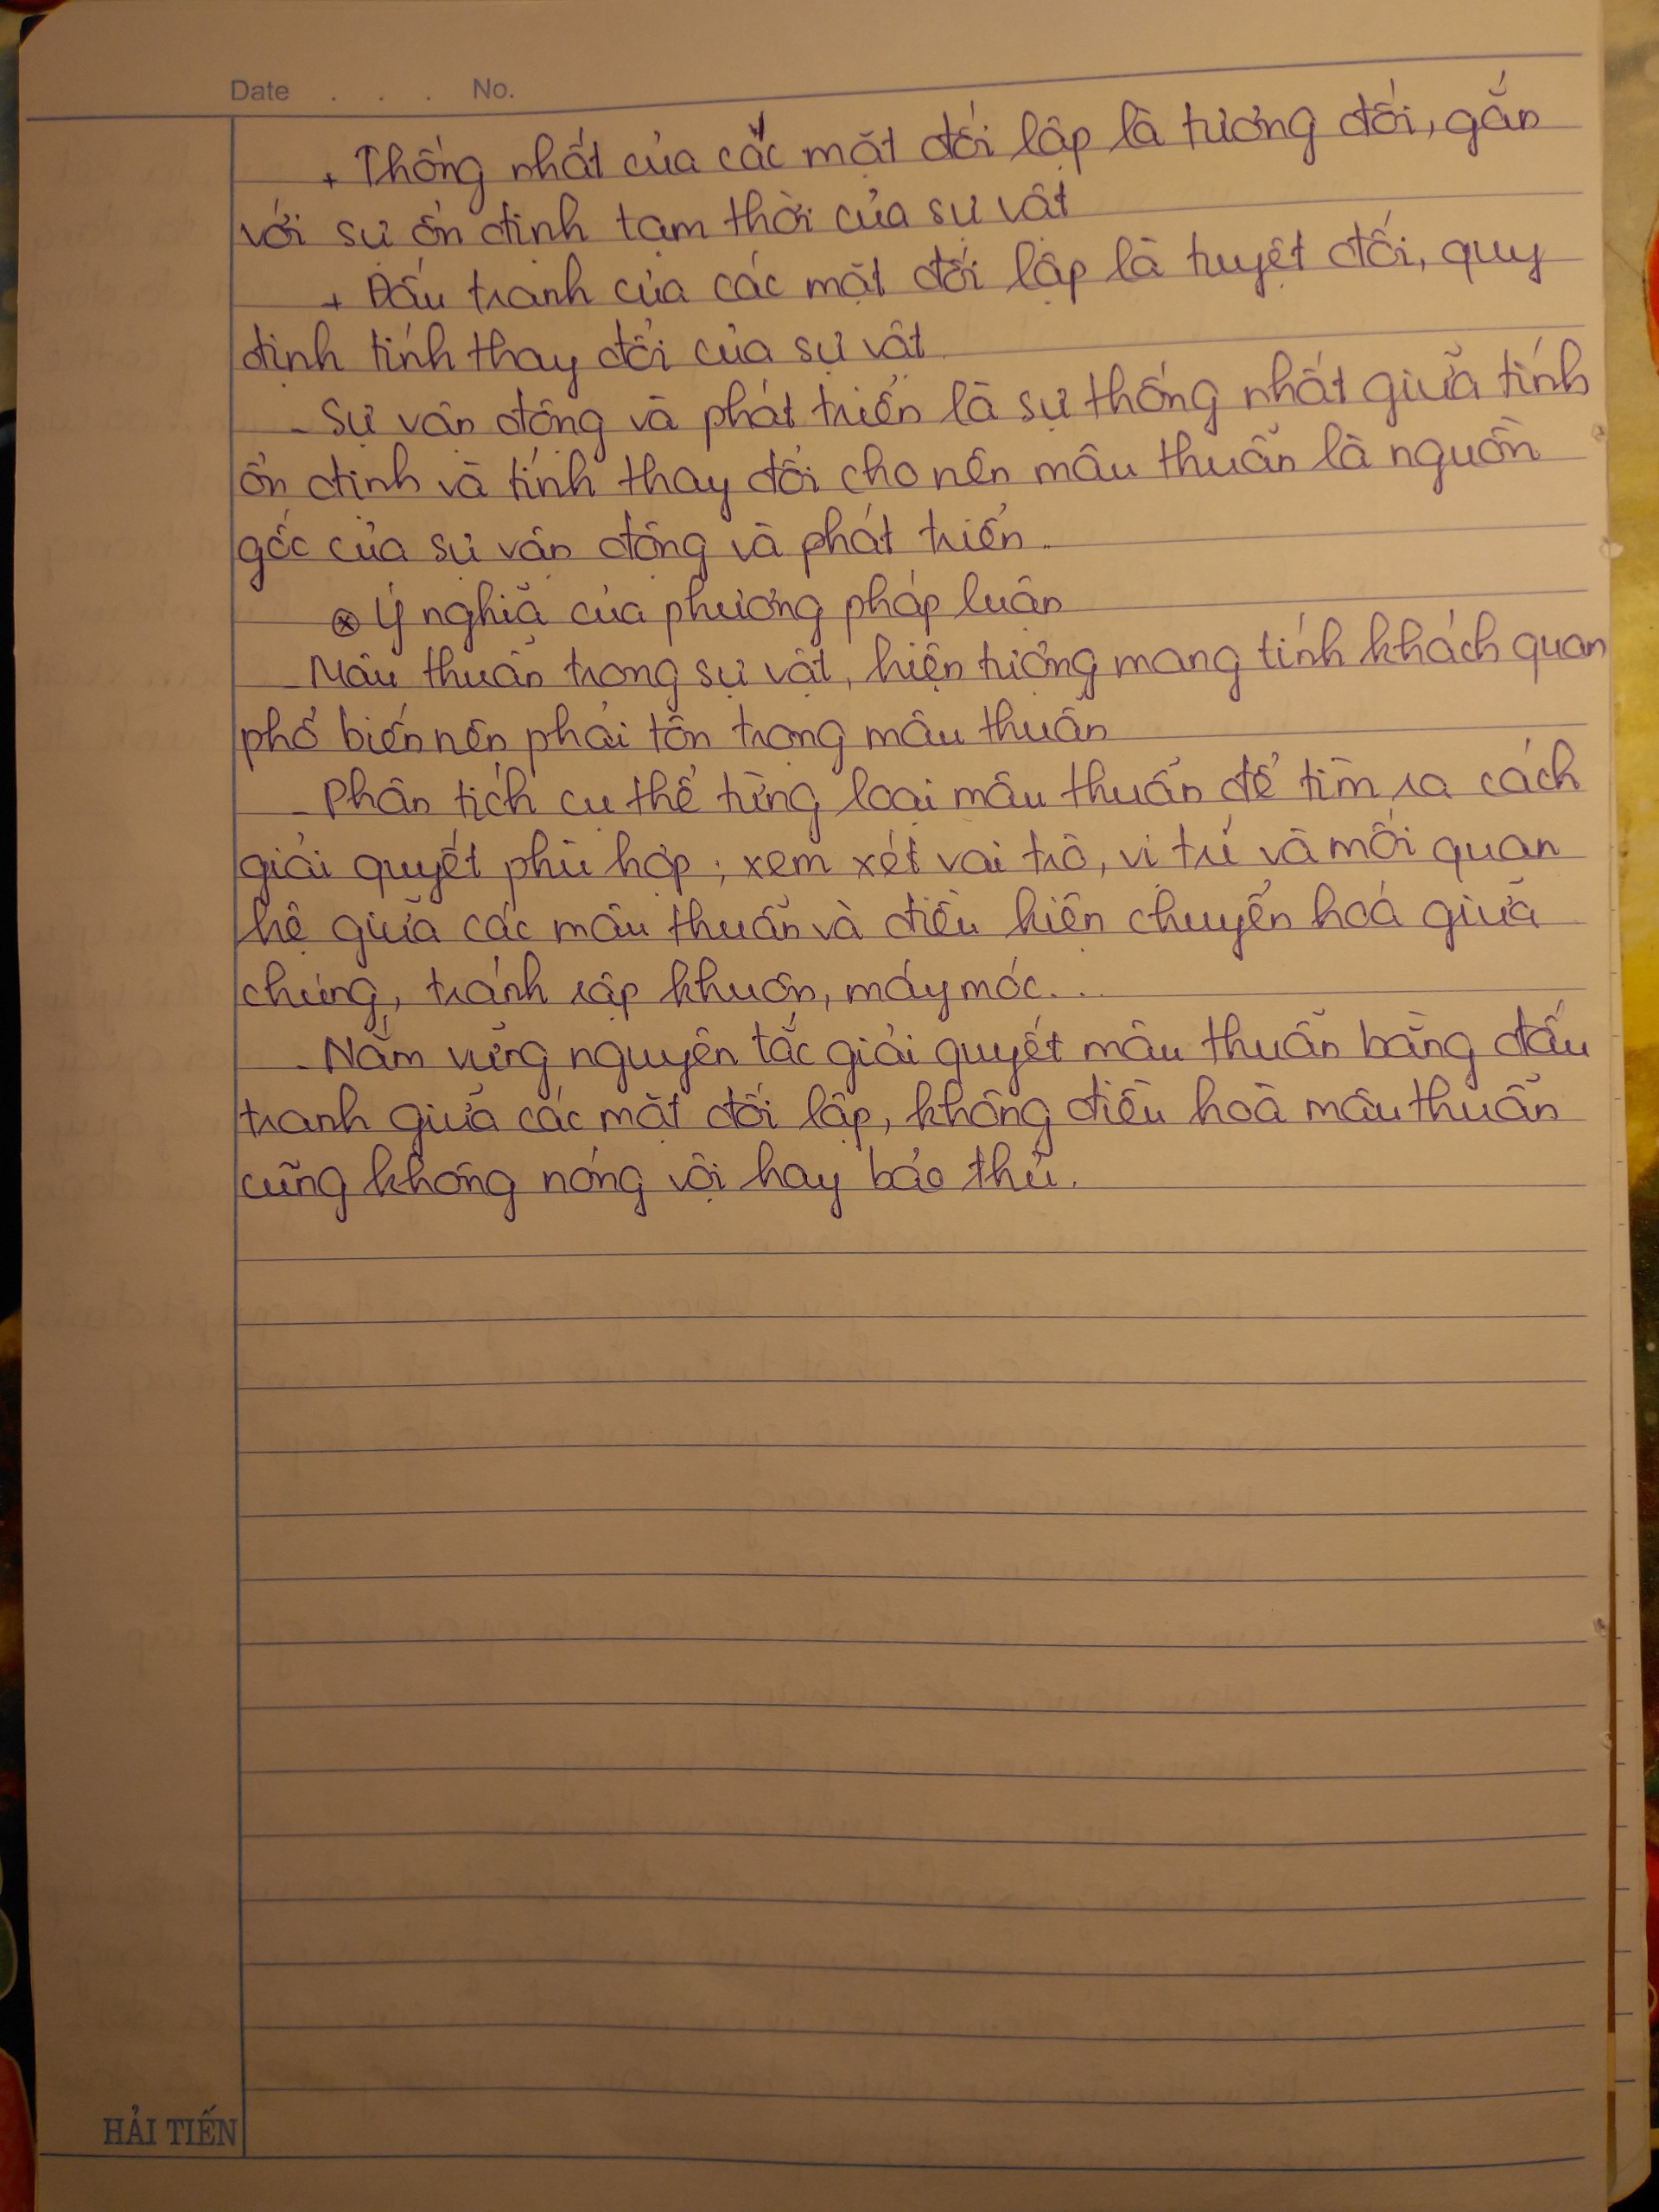 Date . . . No.
+ Thống nhất của các mặt đối lập là tương đối, gắn
với sự ổn định tạm thời của sự vật
+ Đấu tranh của các mặt đối lập là tuyệt đối, quy
định tính thay đổi của sự vật.
- Sự vận động và phát triển là sự thống nhất giữa tính
ổn định và tính thay đổi cho nên mâu thuẫn là nguồn
gốc của sự vận động và phát triển.
⊗ Ý nghĩa của phương pháp luận
- Mâu thuẫn trong sự vật, hiện tượng mang tính khách quan
phổ biến nên phải tôn trọng mâu thuẫn
- Phân tích cụ thể từng loại mâu thuẫn để tìm ra cách
giải quyết phù hợp; xem xét vai trò, vị trí và mối quan
hệ giữa các mâu thuẫn và điều kiện chuyển hoá giữa
chúng, tránh rập khuôn, máy móc...
- Nắm vững nguyên tắc giải quyết mâu thuẫn bằng đấu
tranh giữa các mặt đối lập, không điều hoà mâu thuẫn
cũng không nóng vội hay bảo thủ.
HẢI TIẾN